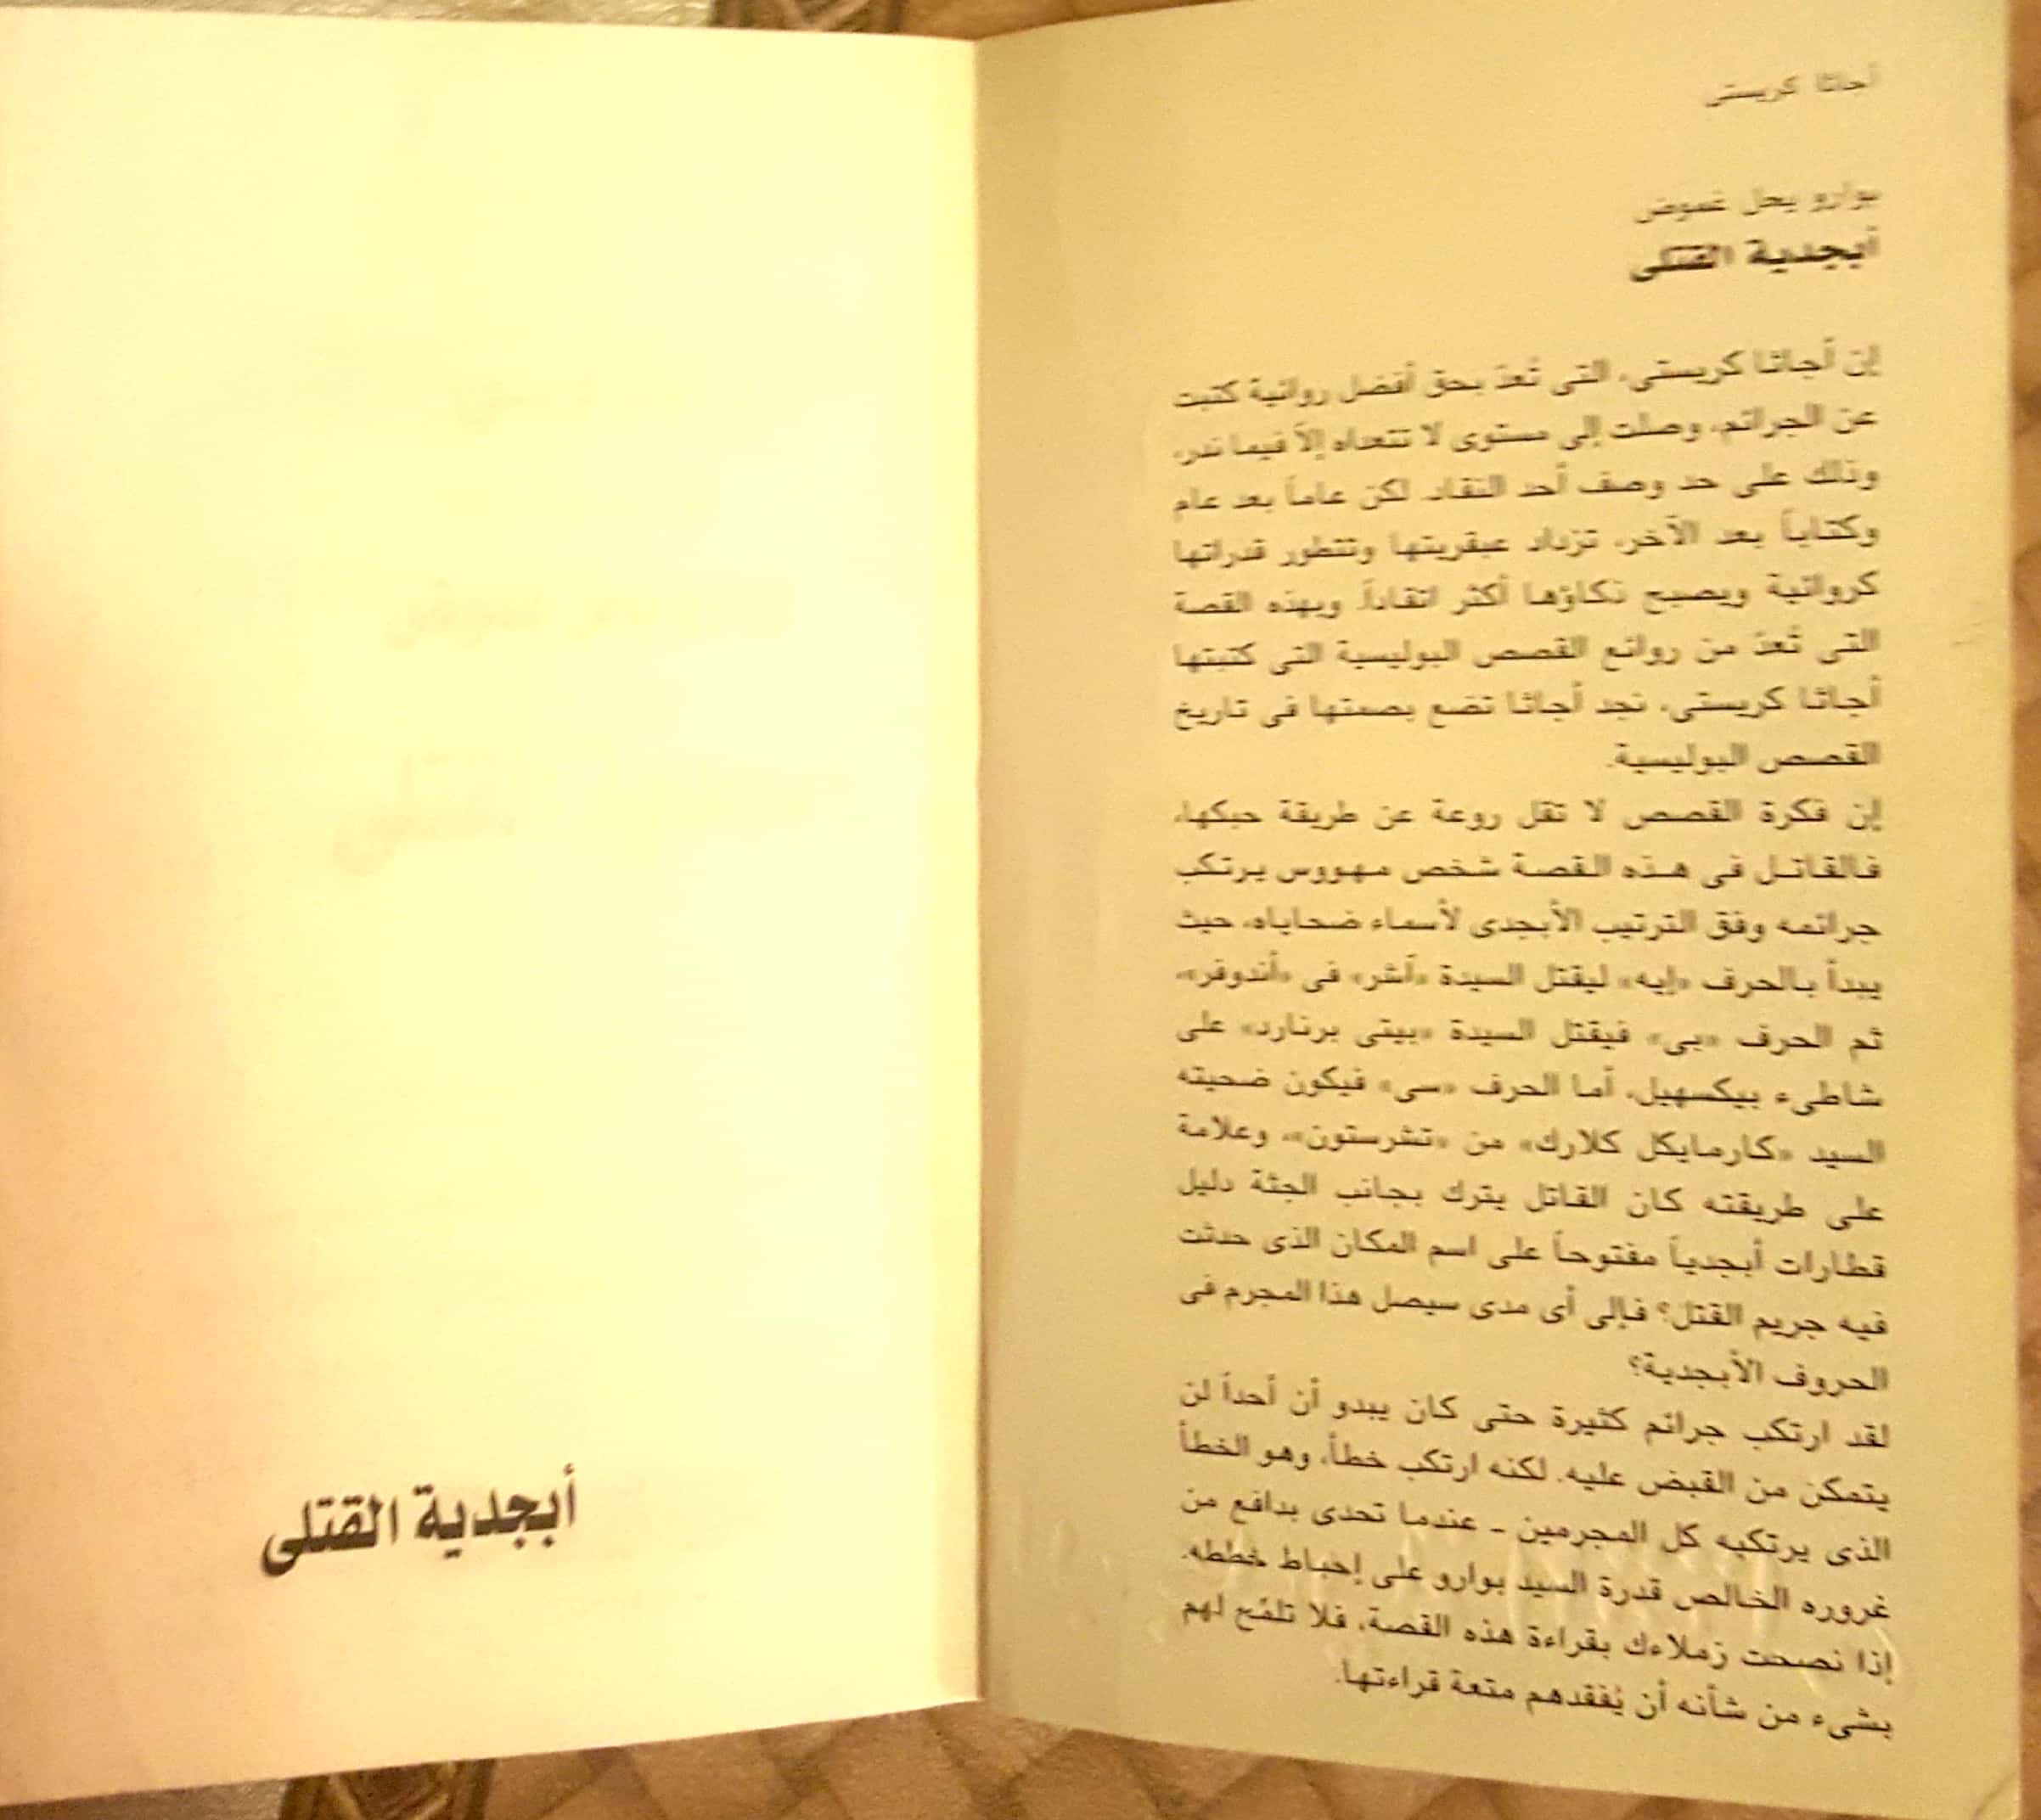 أجاثا كريستى
بوارو يحل غموض
أبجدية القتلى
إن أجاثا كريستى، التى تُعدّ بحق أفضل روائية كتبت
عن الجرائم، وصلت إلى مستوى لا تتعداه إلاّ فيما ندر،
وذلك على حد وصف أحد النقاد. لكن عاماً بعد عام
وكتاباً بعد الآخر، تزداد عبقريتها وتتطور قدراتها
كروائية ويصبح ذكاؤها أكثر اتقاداً. وبهذه القصة
التى تُعدّ من روائع القصص البوليسية التى كتبتها
أجاثا كريستى، نجد أجاثا تضع بصمتها فى تاريخ
القصص البوليسية.
إن فكرة القصص لا تقل روعة عن طريقة حبكها،
فالقاتل فى هذه القصة شخص مهووس يرتكب
جرائمه وفق الترتيب الأبجدى لأسماء ضحاياه، حيث
يبدأ بالحرف «إيه» ليقتل السيدة «آشر» فى «أندوفر»،
ثم الحرف «بى» فيقتل السيدة «بيتى برنارد» على
شاطىء بيكسهيل، أما الحرف «سى» فيكون ضحيته
السيد «كارمايكل كلارك» من «تشرستون»، وعلامة
على طريقته كان القاتل يترك بجانب الجثة دليل
قطارات أبجدياً مفتوحاً على اسم المكان الذى حدثت
فيه جريم القتل؟ فإلى أى مدى سيصل هذا المجرم فى
الحروف الأبجدية؟
لقد ارتكب جرائم كثيرة حتى كان يبدو أن أحداً لن
يتمكن من القبض عليه. لكنه ارتكب خطأ، وهو الخطأ
الذى يرتكبه كل المجرمين - عندما تحدى بدافع من
غروره الخالص قدرة السيد بوارو على إحباط خططه.
إذا نصحت زملاءك بقراءة هذه القصة، فلا تلمّح لهم
بشىء من شأنه أن يُفقدهم متعة قراءتها.
أبجدية القتلى